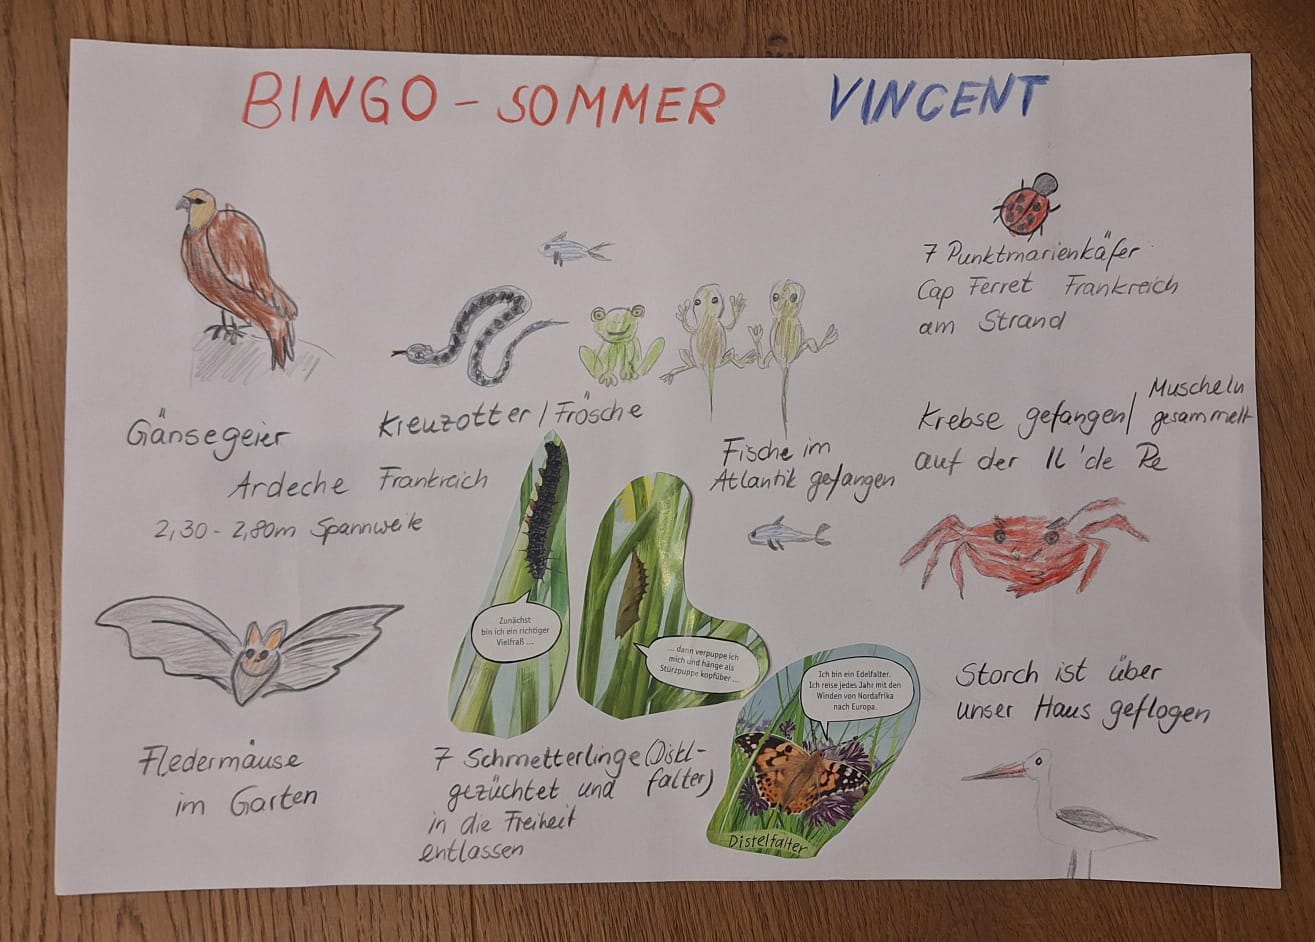 BINGO - SOMMER VINCENT
7 Punktmarienkäfer
Cap Ferret Frankreich
am Strand
Gänsegeier
Ardeche Frankreich
2,30 - 2,80m Spannweite
Kreuzotter / Frösche
Fische im
Atlantik gefangen
Krebse gefangen / Muscheln
gesammelt
auf der IL'de Re
Zunächst
bin ich ein richtiger
Vielfraß ...
... dann verpuppe ich
mich und hänge als
Stürzpuppe kopfüber ...
Ich bin ein Edelfalter.
Ich reise jedes Jahr mit den
Winden von Nordafrika
nach Europa.
Distelfalter
Fledermäuse
im Garten
7 Schmetterlinge (Distl-
falter)
gezüchtet und
in die Freiheit
entlassen
Storch ist über
unser Haus geflogen